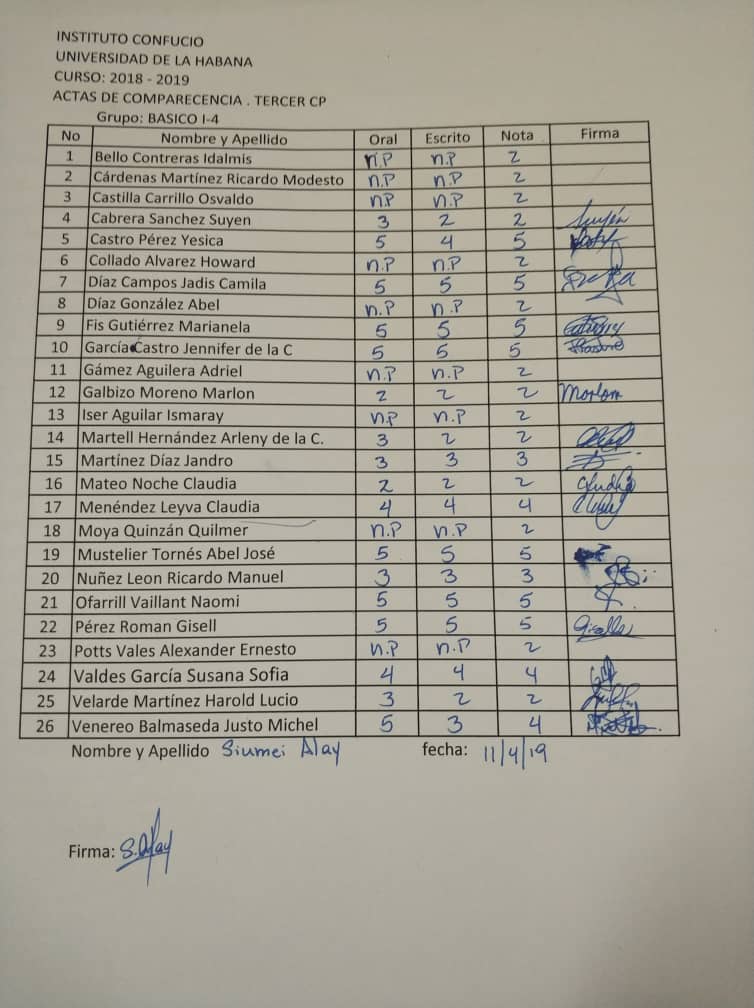 INSTITUTO CONFUCIO
UNIVERSIDAD DE LA HABANA
CURSO: 2018 - 2019
ACTAS DE COMPARECENCIA . TERCER CP
Grupo: BASICO I-4
No Nombre y Apellido Oral Escrito Nota Firma
1 Bello Contreras Idalmis n.P n.P 2
2 Cárdenas Martínez Ricardo Modesto n.P n.P 2
3 Castilla Carrillo Osvaldo n.P n.P 2
4 Cabrera Sanchez Suyen 3 2 2 Suyén
5 Castro Pérez Yesica 5 4 5
6 Collado Alvarez Howard n.P n.P 2
7 Díaz Campos Jadis Camila 5 5 5
8 Díaz González Abel n.P n.P 2
9 Fis Gutiérrez Marianela 5 5 5
10 García Castro Jennifer de la C 5 5 5
11 Gámez Aguilera Adriel n.P n.P 2
12 Galbizo Moreno Marlon 2 2 2 Marlon
13 Iser Aguilar Ismaray n.P n.P 2
14 Martell Hernández Arleny de la C. 3 2 2
15 Martínez Díaz Jandro 3 3 3
16 Mateo Noche Claudia 2 2 2 Claudia
17 Menéndez Leyva Claudia 4 4 4
18 Moya Quinzán Quilmer n.P n.P 2
19 Mustelier Tornés Abel José 5 5 5
20 Nuñez Leon Ricardo Manuel 3 3 3
21 Ofarrill Vaillant Naomi 5 5 5
22 Pérez Roman Gisell 5 5 5
23 Potts Vales Alexander Ernesto n.P n.P 2
24 Valdes García Susana Sofia 4 4 4
25 Velarde Martínez Harold Lucio 3 2 2
26 Venereo Balmaseda Justo Michel 5 3 4
Nombre y Apellido Siumei Alay fecha: 11/4/19
Firma: S. Alay